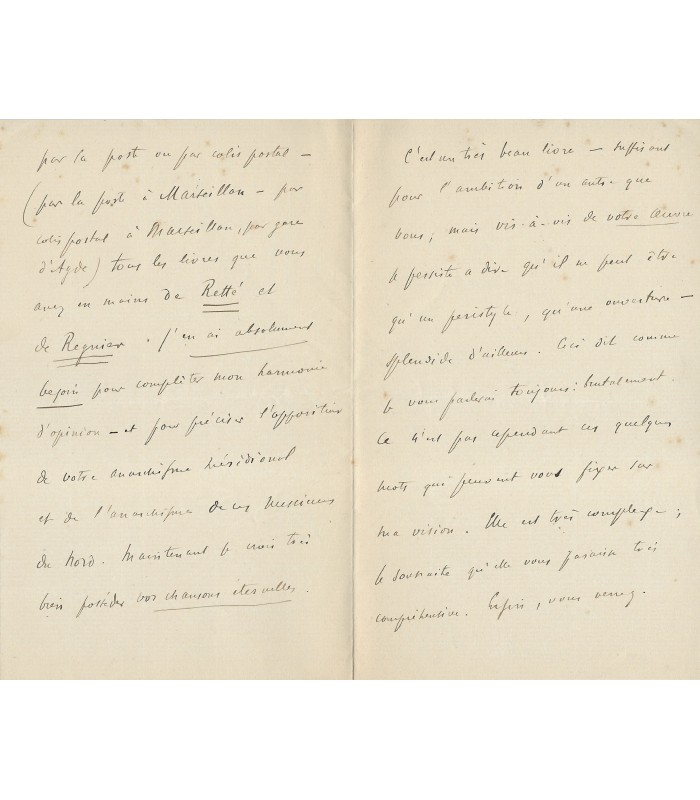 par la poste ou par colis postal –
(par la poste à Marseillan – par
colis postal à Marseillan, par gare
d'Agde) tous les livres que vous
avez en mains de Retté et
de Regnier. J'en ai absolument
besoin pour compléter mon harmonie
d'opinion – et pour préciser l'opposition
de votre anarchisme méridional
et de l'anarchisme de ces Messieurs
du Nord. Maintenant je crois très
bien posséder vos chansons éternelles.
C'est un très beau livre – suffisant
pour l'ambition d'un autre que
vous; mais vis-à-vis de votre Œuvre
je persiste à dire qu'il ne peut être
qu'un peristyle, qu'une ouverture –
splendide d'ailleurs. Ceci dit comme
je vous parlerai toujours: brutalement.
Ce n'est pas cependant ces quelques
mots qui peuvent vous fixer sur
ma vision. Elle est très complexe;
je souhaite qu'elle vous paraisse très
compréhensive. Enfin, vous verrez.